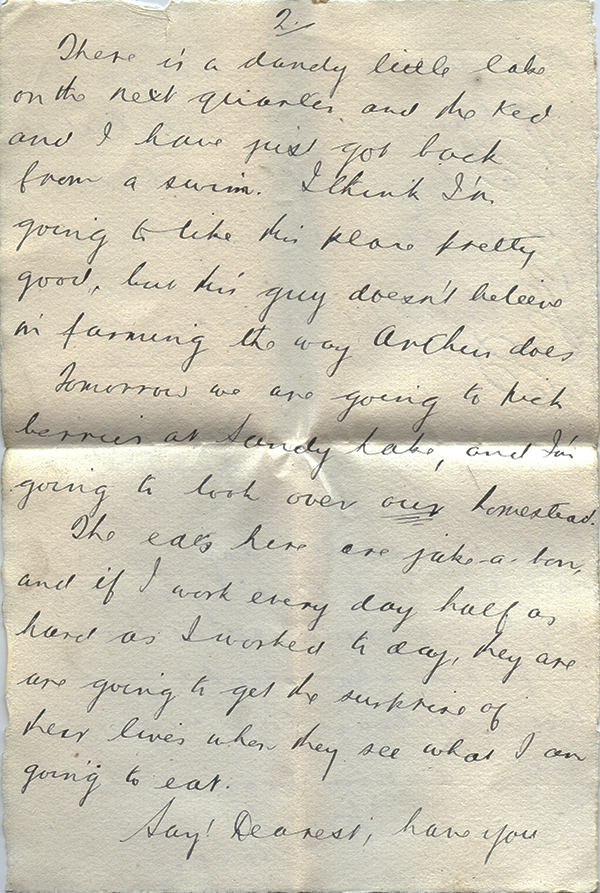 2.
There is a dandy little lake
on the next quarter and the Ked
and I have just got back
from a swim. I think I'm
going to like this place pretty
good, but this guy doesn't beleive
in farming the way Archer does
Tomorrow we are going to pick
berries at Sandy Lake, and I'm
going to look over our homestead.
The eats here are jake-a-lon,
and if I work every day half as
hard as I worked to day, they are
are going to get the surprise of
their lives when they see what I am
going to eat.
Say! Dearest, have you